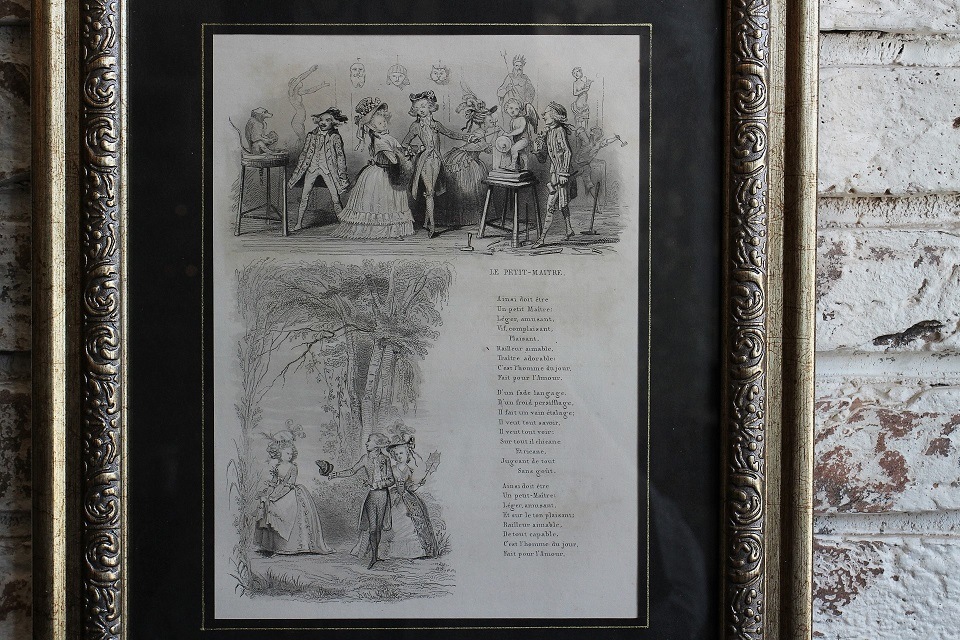 LE PETIT-MAITRE.
Ainsi doit être
Un petit Maître:
Léger, amusant,
Vif, complaisant,
Plaisant,
Railleur aimable,
Traître adorable:
C'est l'homme du jour,
Fait pour l'Amour.
D'un fade langage,
D'un froid persifflage,
Il fait un vain étalage;
Il veut tout savoir,
Il veut tout voir:
Sur tout il chicane
Et ricane,
Jugeant de tout
Sans goût.
Ainsi doit être
Un petit-Maître:
Léger, amusant,
Et sur le ton plaisant;
Railleur aimable,
De tout capable.
C'est l'homme du jour,
Fait pour l'Amour.